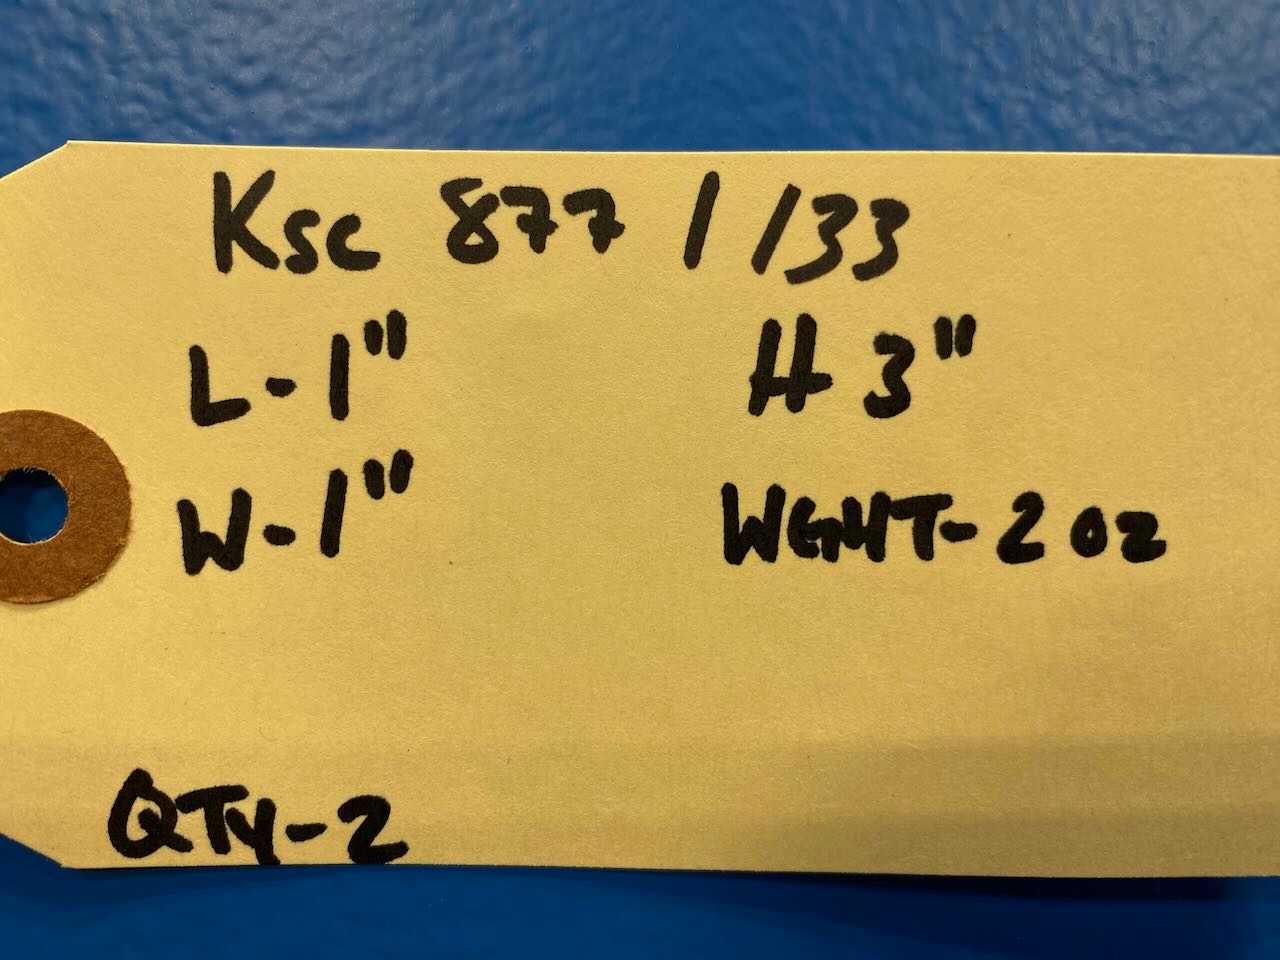 Ksc 877 / 133
L-1" H 3"
W-1" WGHT-2 oz
QTY-2